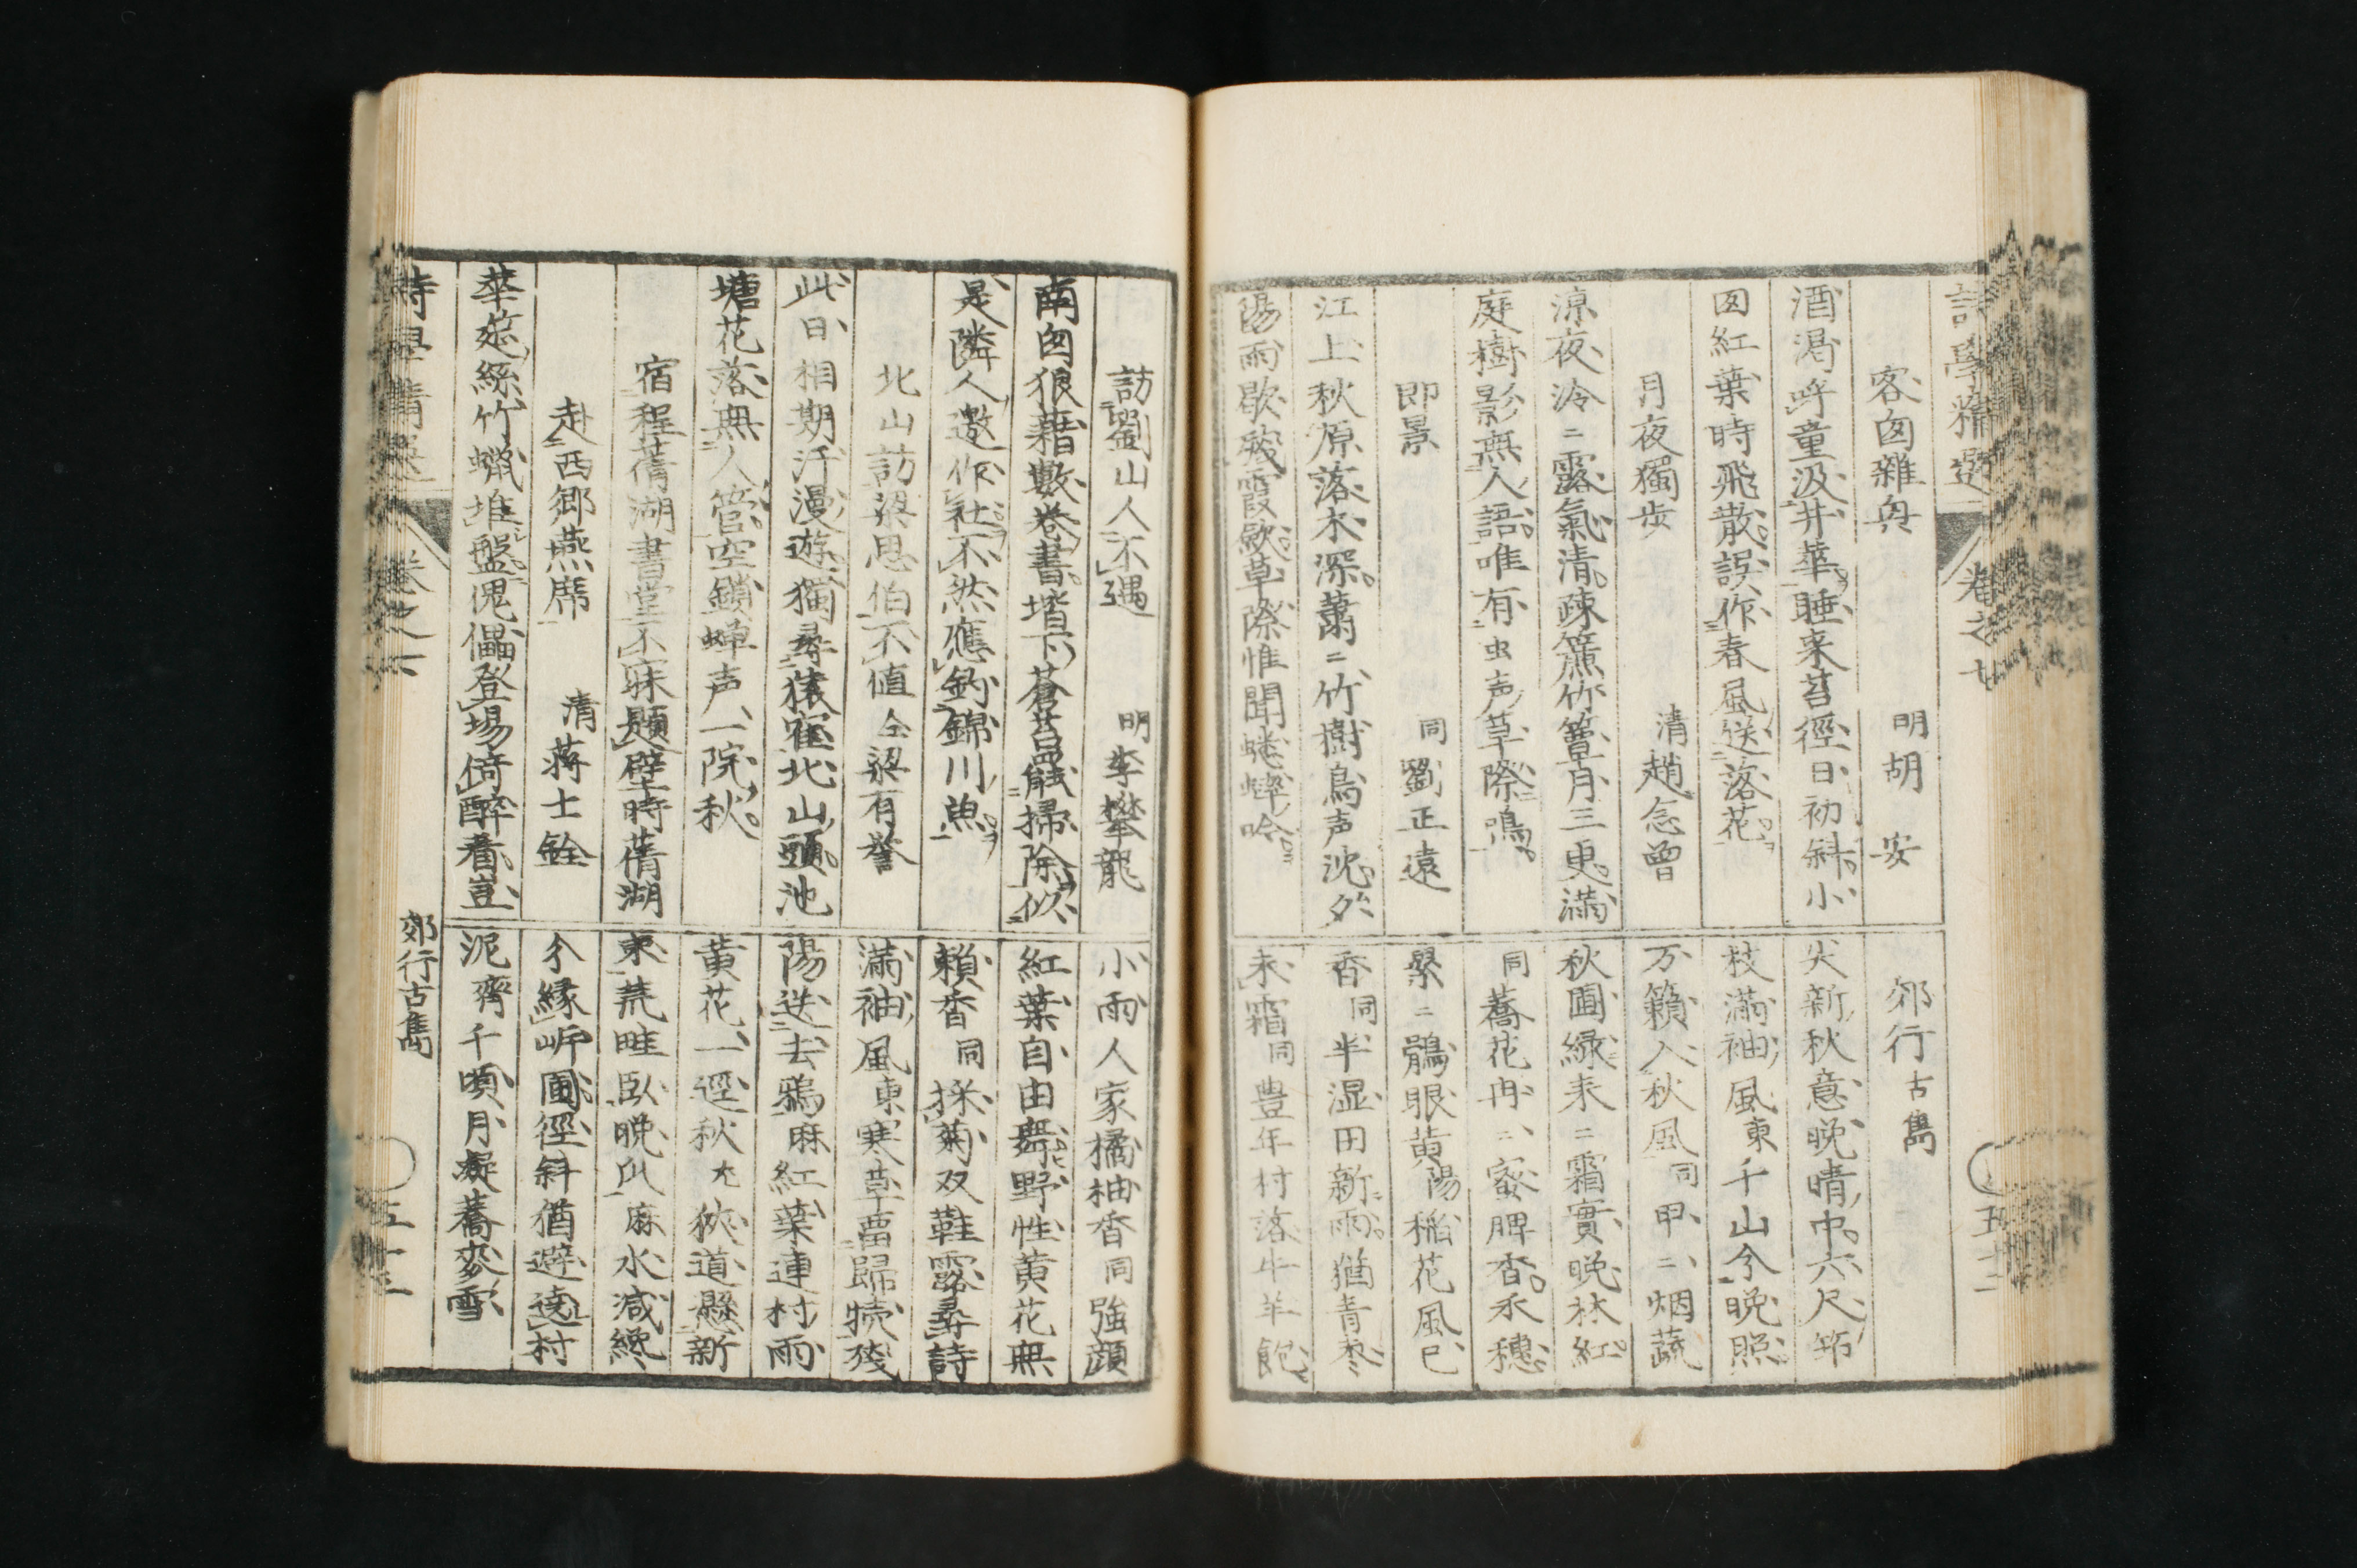 客囱雜興
明胡 安
酒渴呼童汲井華睡来苔徑日初斜小
囱紅葉時飛散誤作春風送落花
月夜獨歩
清趙念曾
涼夜冷〻露氣清疎簾竹簟月三更滿
庭樹影無人語唯有虫声草際鳴
即景
同劉正遠
江上秋原落木深蕭〻竹樹鳥声沈夕
陽雨歇殘霞歛草際惟聞蟋蟀吟
郊行古雋
尖新秋意晩晴中六尺筇
枝滿袖風東千山分晩照
万籟入秋風同甲〻烟蔬
秋圃緑耒〻霜實晩林紅
同蕎花冉〻蜜脾香禾穗
纍〻鶻眼黄陽稲花風已
香同半湿田新雨猶青棗
未霜同豊年村落牛羊飽
訪劉山人不遇
明李攀龍
南囱狼藉數卷書堦下蒼苔罷掃除似
是隣人邀作社不然應釣錦川魚
北山訪梁思伯不値
仝梁有誉
此日相期汗漫遊獨尋猿寉北山頭池
塘花落無人管空鎖蟬声一院秋
宿程蒨湖書堂不寐題壁時蒨湖
赴西郷燕席
清蒋士銓
華筵絲竹蠟堆盤傀儡登場倚醉看豈
小雨人家橘柚香同強顔
紅葉自由舞野性黄花無
賴香同採菊双鞋露尋詩
滿袖風東寒草畱歸犢殘
陽送去鴉麻紅葉連村雨
黄花一逕秋尤狹道懸新
棗荒畦臥晩瓜麻水減纔
分縁岸圃徑斜猶避遶村
泥齊千頃月凝蕎麥雪
郊行古雋